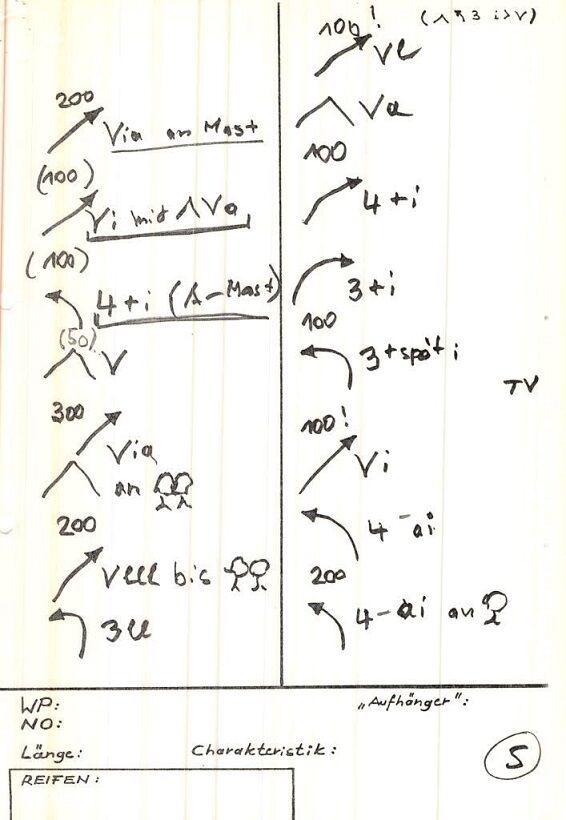 200
Via an Mast
(100)
Vi mit ΛVa
(100)
4+i (Λ-Mast)
(50)
V
300
Via
an
200
VLLL bis
3LL
100!
VL
Va
100
4+i
3+i
100
3+spät i
TV
100!
Vi
4-ai
200
4-ai an
WP:
NO:
Länge:
Charakteristik:
"Aufhänger":
REIFEN:
5